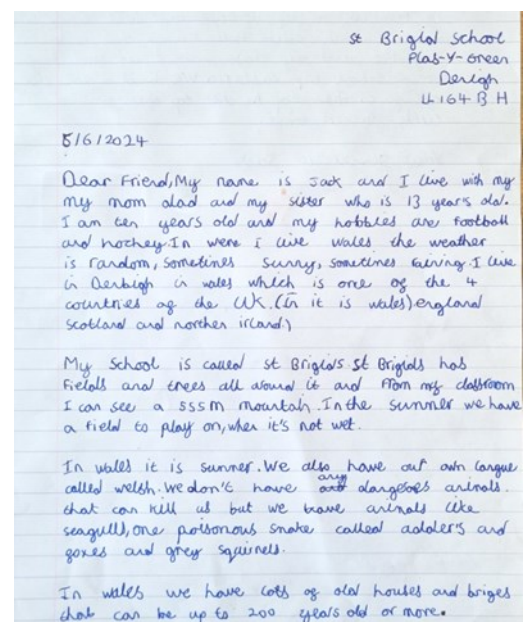 St Brigid School
Plas-Y-Green
Denbigh
LL164BH
5/6/2024
Dear Friend, My name is Jack and I live with my
my mom dad and my sister who is 13 year's old.
I am ten years old and my hobbies are football
and hockey. In were i live wales the weather
is random, sometines sunny, sometines raining. I live
in Denbigh in wales which is one of the 4
countries of the UK. (In it is wales) england
Scotland and norther irland.)
My School is called st Brigids. St Brigids has
Fields and trees all around it and from my classroom
I can see a 555m mountain. In the summer we have
a field to play on, when it's not wet.
In wales it is summer. We also have out own langue
called welsh. We don't have any dangeoes aninals
that can kill us but we have aninals like
seagulls, one poisonous snake called adder's and
foxes and grey squirrels.
In wales we have lots of old houses and briges
that can be up to 200 years old or more.